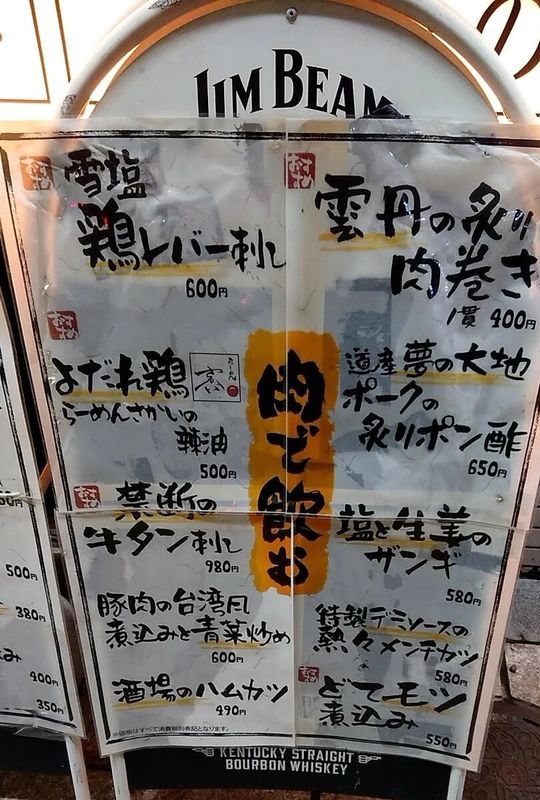 の
JIM BEAM
おすすめ
雲丹の炙り
肉巻き
1貫 400円
道産夢の大地
ポークの
炙りポン酢
650円
塩と生姜の
ザンギ
580円
特製デミソースの
熱々メンチカツ
580円
おすすめ
どてモツ
煮込み
550円
肉で飲お
おすすめ
雪塩
鶏レバー刺し
600円
おすすめ
よだれ鶏
らーめんさかいの
辣油
500円
おすすめ
禁断の
牛タン刺し
980円
豚肉の台湾風
煮込みと青菜炒め
600円
酒場のハムカツ
490円
※価格はすべて消費税別表記となります。
KENTUCKY STRAIGHT
BOURBON WHISKEY
500円
380円
400円
350円